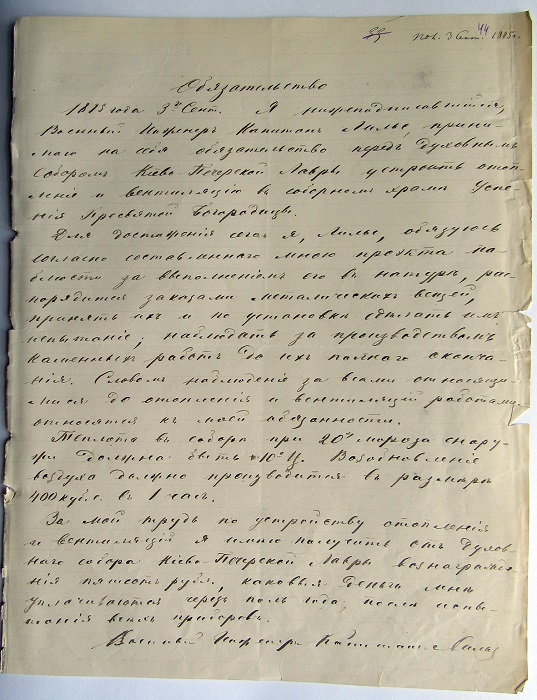 44
Пол. 3 Сент. 1885г.
Обязательство
1885 года 3го Сент. Я нижеподписавшійся,
Военный Инженеръ Капитанъ Лилье, прини-
маю на себя обязательство передъ Духовнымъ
Соборомъ Кіево-Печерской Лавры устроить отоп-
леніе и вентиляцію въ соборномъ храмѣ Успе-
нія Пресвятой Богородицы.
Для достиженія сего я, Лилье, обязуюсь
согласно составленнаго мною проэкта на-
блюсти за выполненіемъ его въ натурѣ, рас-
порядится заказами металическихъ вещей,
принять ихъ и по установкѣ сдѣлать имъ
испытаніе; наблюдать за производствомъ
каменныхъ работъ до ихъ полнаго оконча-
нія. Словомъ наблюденіе за всеми относящи-
мися до отопленія и вентиляціи работами
относятся къ моей обязанности.
Теплота въ соборѣ при 20° мороза снару-
жи должна быть +10° Ц. Возобновленіе
воздуха должно производится въ размѣрѣ
400 куб. с. въ 1 часъ.
За мой трудъ по устройству отопленія
и вентиляціи я имѣю получить отъ Духов-
наго собора Кіево-Печерской Лавры вознагражде-
нія пятьсотъ рубл., каковыя деньги мнѣ
уплачиваются черезъ полъ года, послѣ испы-
танія всѣхъ приборовъ.
Военный Инженеръ Капитанъ Лилье